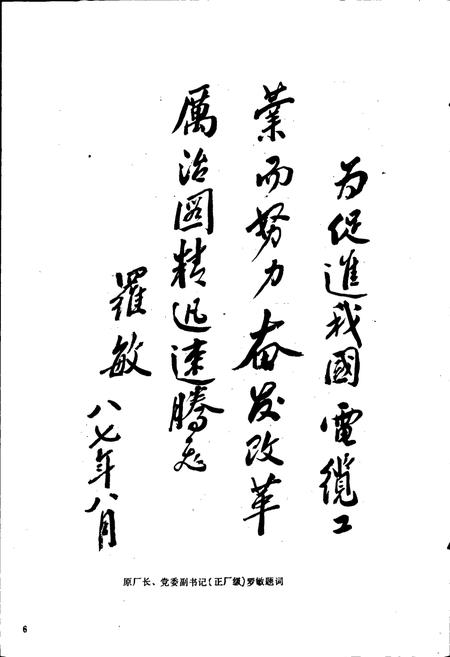 为促進我國電缆工
業而努力奋发改革
厲治图精迅速騰飞
羅敏
八七年八月
原厂长、党委副书记(正厂级)罗敏题词
6